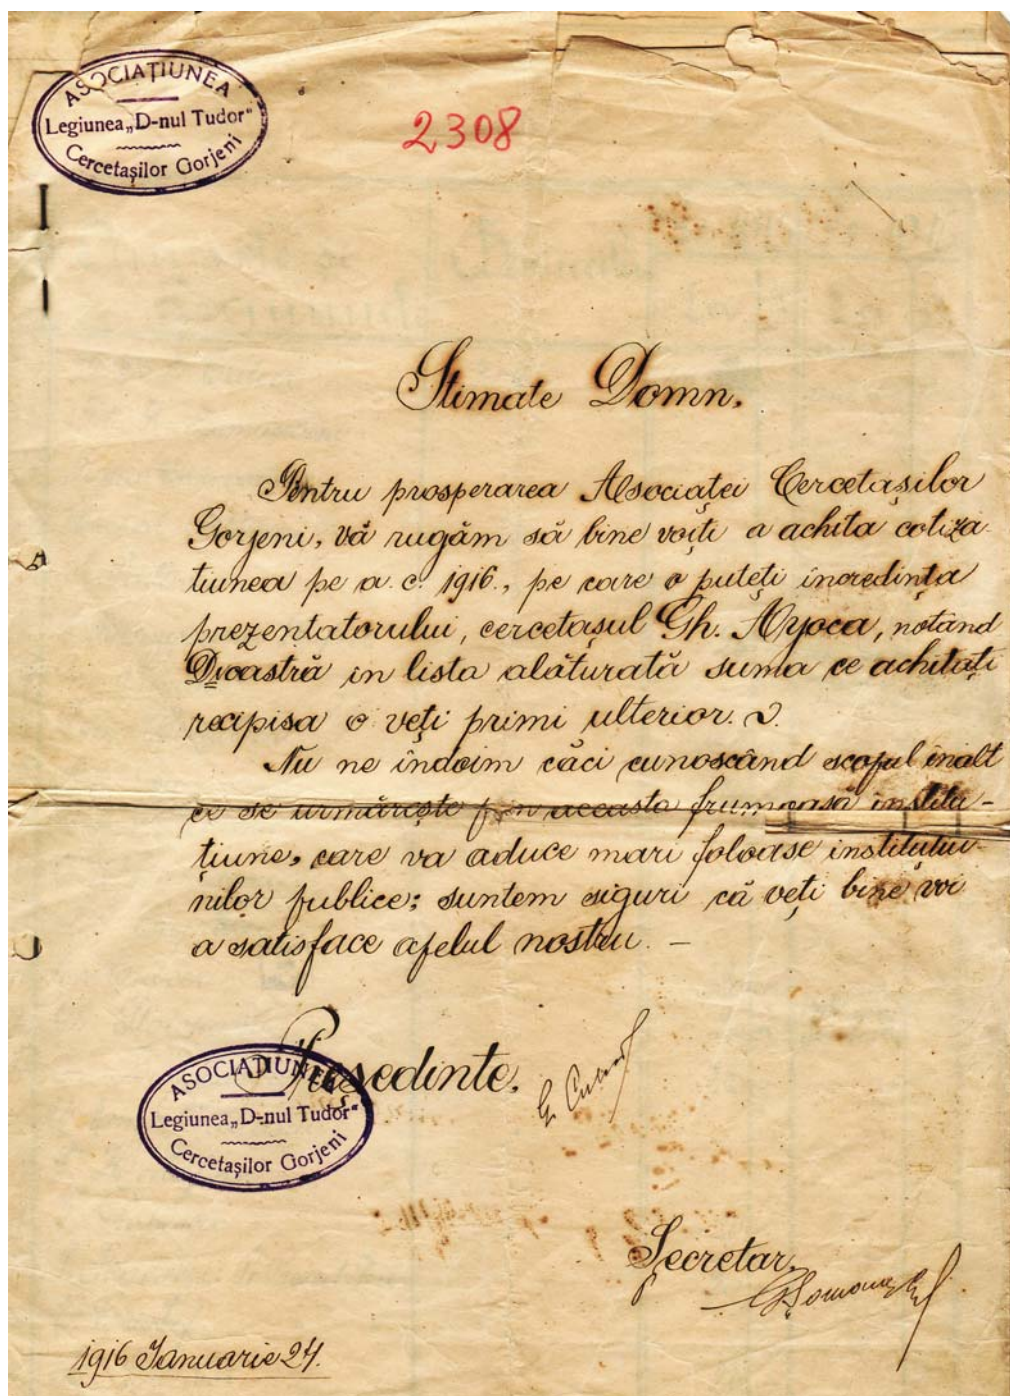 ASOCIAȚIUNEA
Legiunea „D-nul Tudor“
Cercetașilor Gorjeni
2308
Stimate Domn.
Pentru prosperarea Asociaței Cercetașilor
Gorjeni, vă rugăm să bine voiți a achita cotiza-
tiunea pe a. c. 1916., pe care o puteți incredința
prezentatorului, cercetașul Gh. , notând
Dvoastră in lista alăturată suma ce achitați
recipisa o veți primi ulterior.
Nu ne îndoim căci cunoscând scopul înalt
ce se urmărește prin aceasta frumoasă institu-
țiune, care va aduce mari foloase instituțiu-
nilor publice; suntem siguri că veți bine voi
a satisface apelul nostru. —
Președinte.
ASOCIAȚIUNEA
Legiunea „D-nul Tudor“
Cercetașilor Gorjeni
Secretar,
1916 Ianuarie 24.